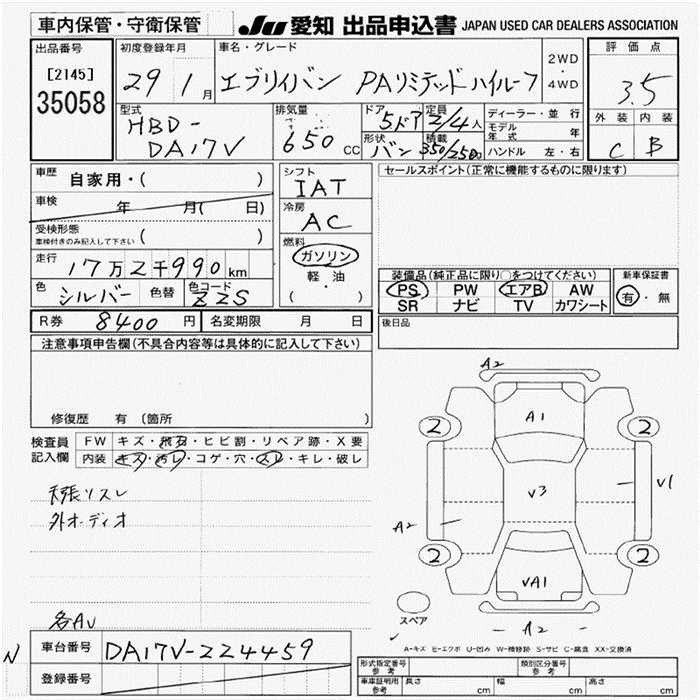 車内保管・守衛保管
JU 愛知 出品申込書 JAPAN USED CAR DEALERS ASSOCIATION
出品番号
[2145]
35058
初度登録年月
29 1月
車名・グレード
エブリイバン PAリミテッドハイルーフ
2WD
・
4WD
評価点
3.5
外装 内装
C B
型式
HBD-
DA17V
排気量
650 cc
ドア
5ドア
定員
2/4人
形状
バン
積載
350/250
ディーラー・並行
モデル年式 年
ハンドル 左・右
車歴 自家用・( )
車検 年 月( 日)
受検形態
車検付きのみ記入して下さい ( )
走行 17万2千990km
色 シルバー 色替 色コード ZZS
シフト
IAT
冷房
AC
燃料
ガソリン
軽・油
( )
セールスポイント(正常に機能するものに限ります)
装備品(純正品に限り○をつけてください)
PS PW エアB AW
SR ナビ TV カワシート
新車保証書
有・無
R券 8400円 名変期限 月 日
後日品
注意事項申告欄(不具合内容等は具体的に記入して下さい)
修復歴 有 (箇所 )
検査員記入欄
FW キズ・飛石・ヒビ割・リペア跡・X要
内装 キズ・汚レ・コゲ・穴・スレ・キレ・破レ
天張リスレ
外オーディオ
各AU
A2
A1
2 2
V3
V1
A2
2 2
VA1
A2
スペア
A-キズ E-エクボ U-凹み W-補修跡 S-サビ C-腐食 XX-交換済
N
車台番号 DA17V-224459
登録番号
形式指定番号 参考
類別区分番号 参考
車庫証明用 参考
長さ cm 幅 cm 高さ cm